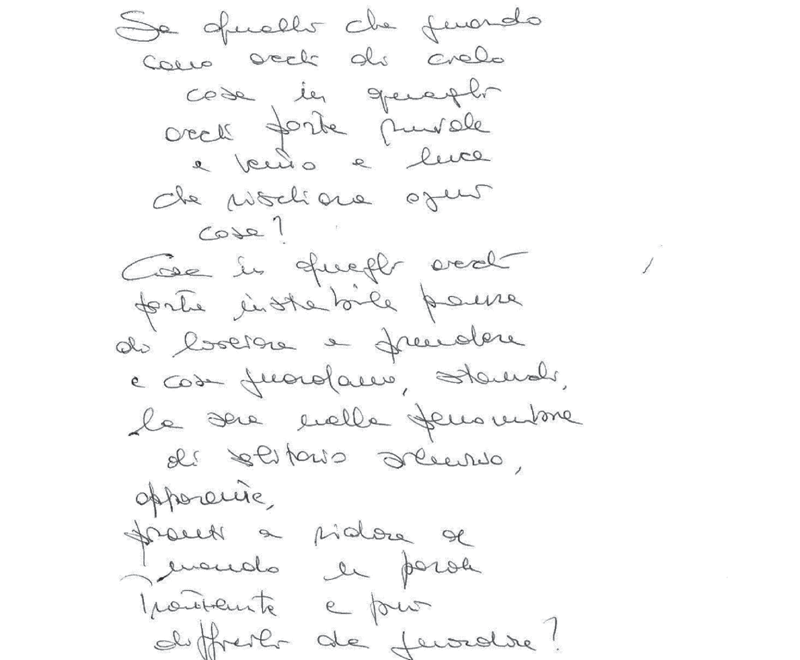 Se quello che guardo
sono occhi di cielo
cosa in quegli
occhi forte
e e luce
che rischiara ogni
cosa?
Cosa in quegli occhi
forte instabile paura
di lasciare e prendere
e cosa guardano, stanchi,
la sera nella penombra
di solitario silenzio,
apparente,
pronti a ridare al
mondo la parola
e più
difficile da guardare?